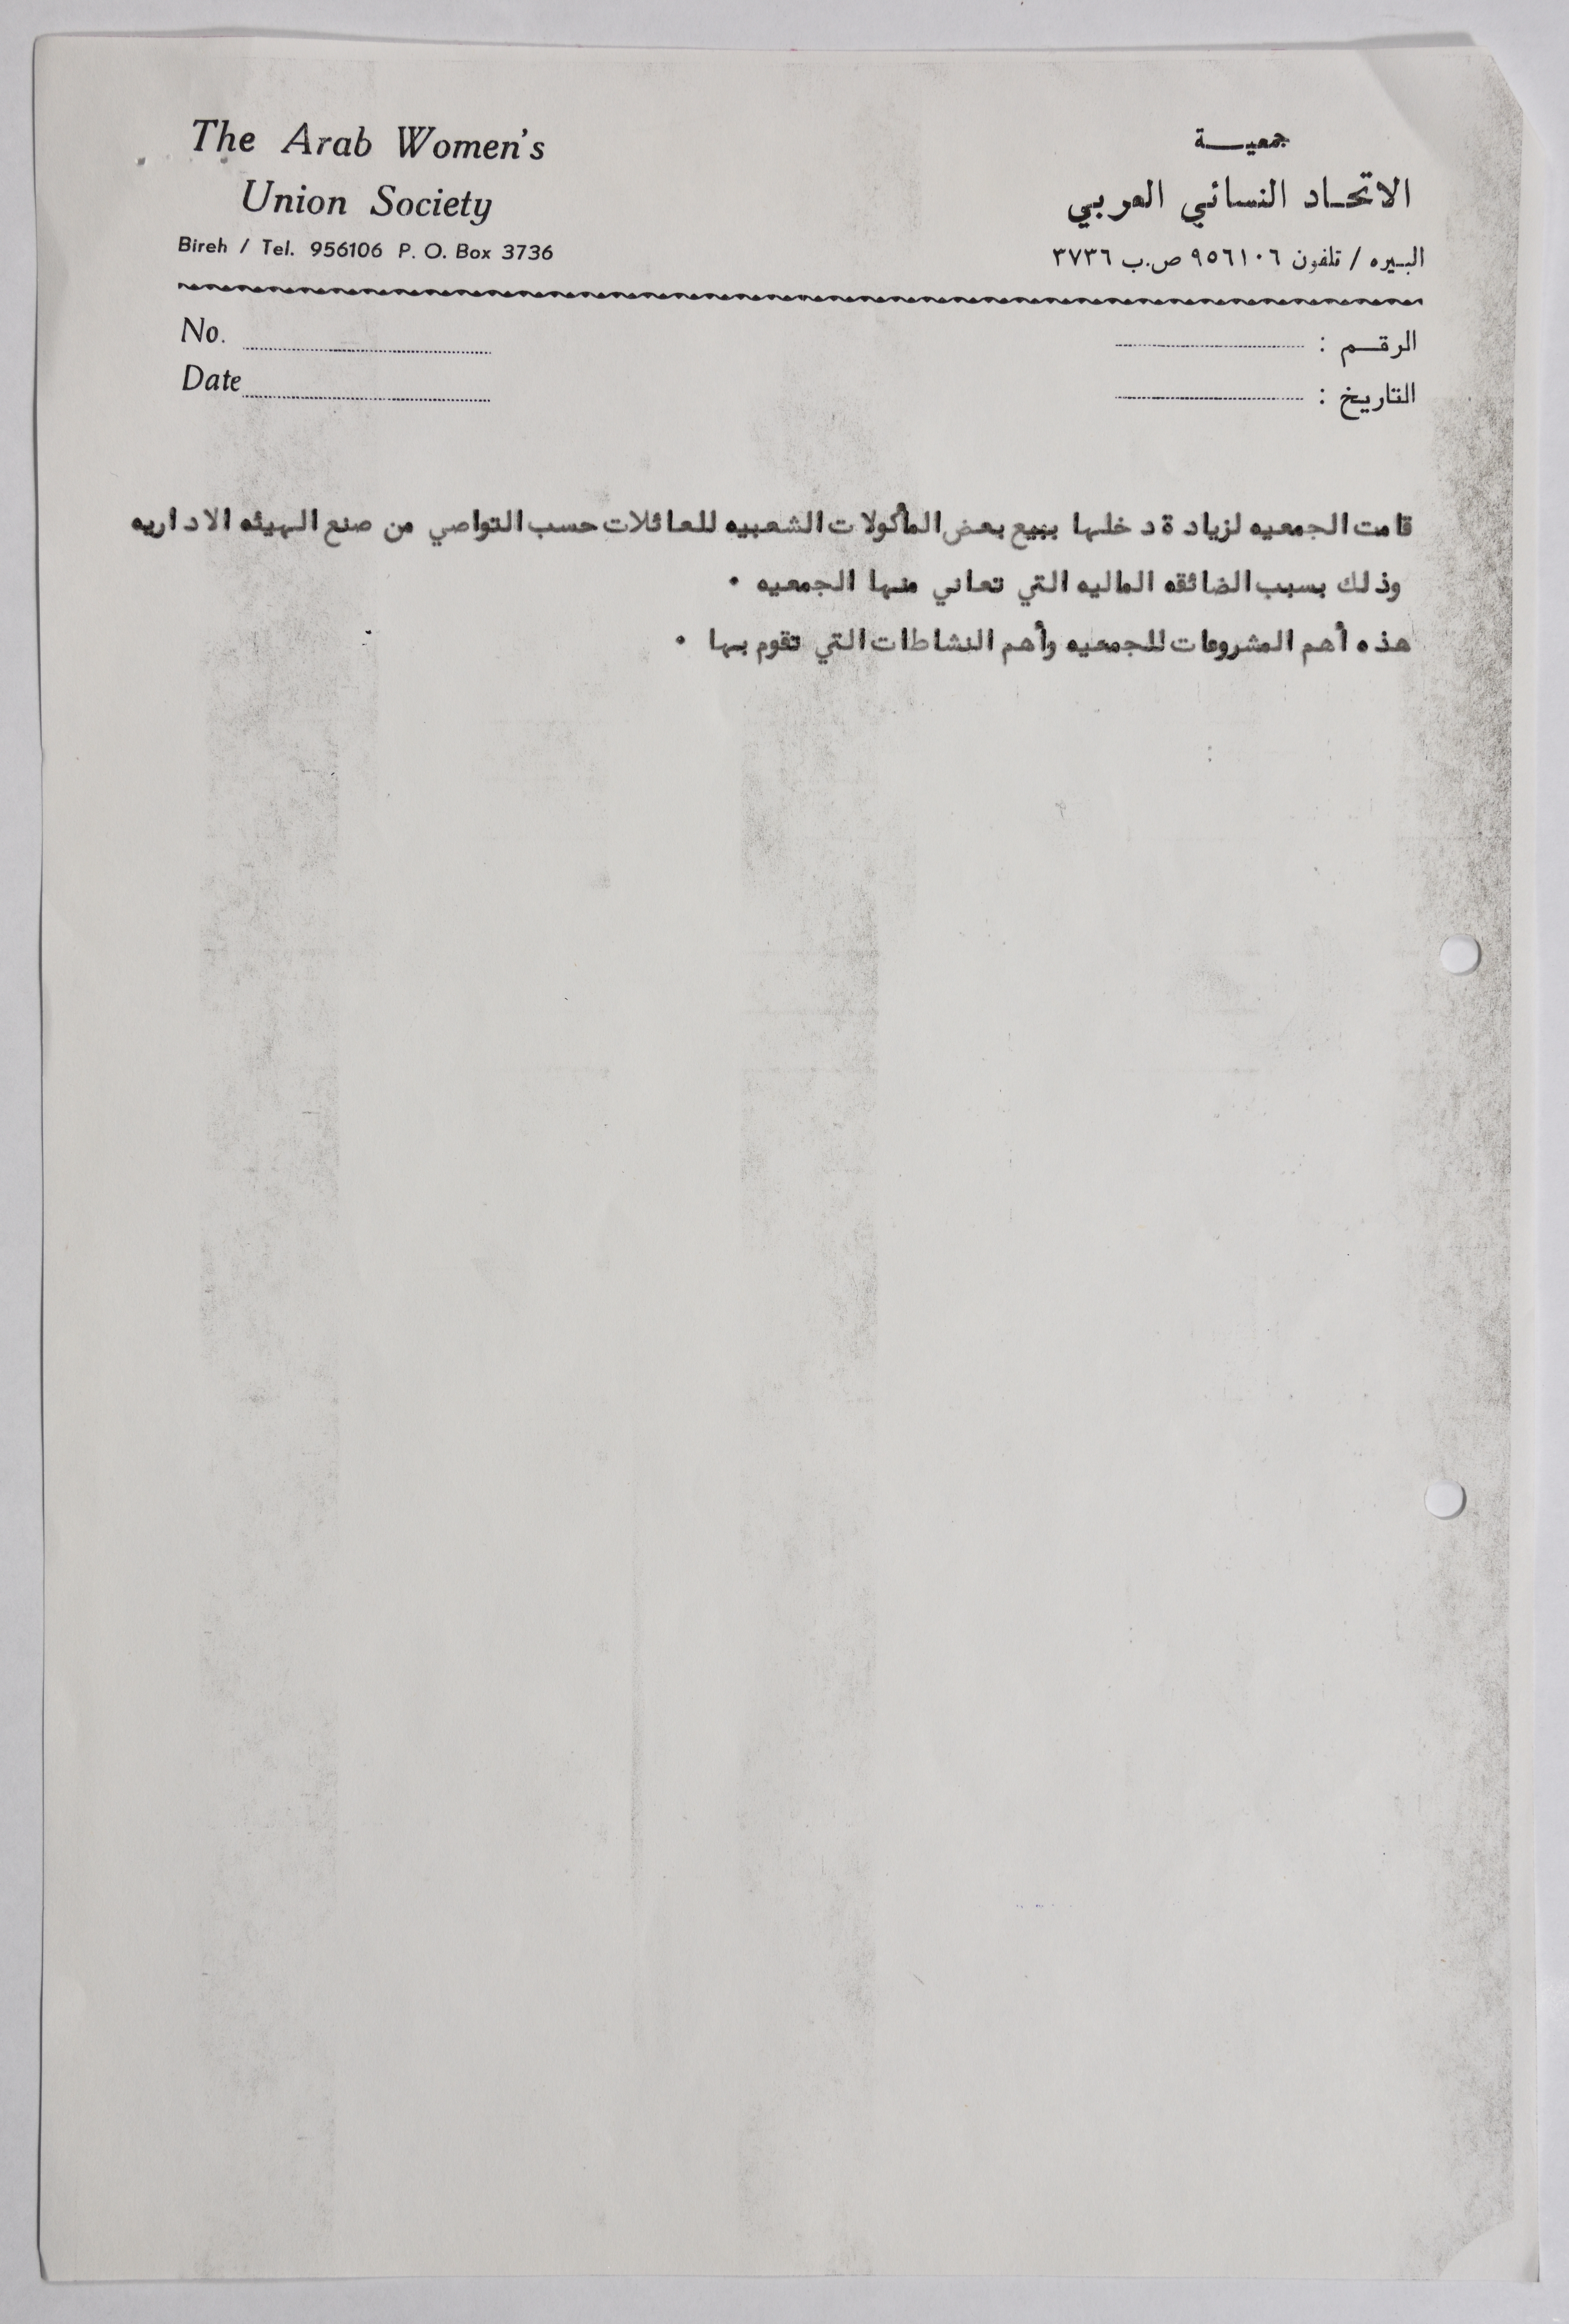 The Arab Women's
Union Society
Bireh / Tel. 956106 P. O. Box 3736
جمعيـــة
الاتحـاد النسائي العربي
البيره / تلفون ٩٥٦١٠٦ ص.ب ٣٧٣٦
No.
Date
الرقـم :
التاريخ :
قامت الجمعيه لزيادة دخلها ببيع بعض المأكولات الشعبيه للعائلات حسب التواصي من صنع الهيئه الاداريه
وذلك بسبب الضائقه الماليه التي تعاني منها الجمعيه .
هذه أهم المشروعات للجمعيه وأهم النشاطات التي تقوم بها .